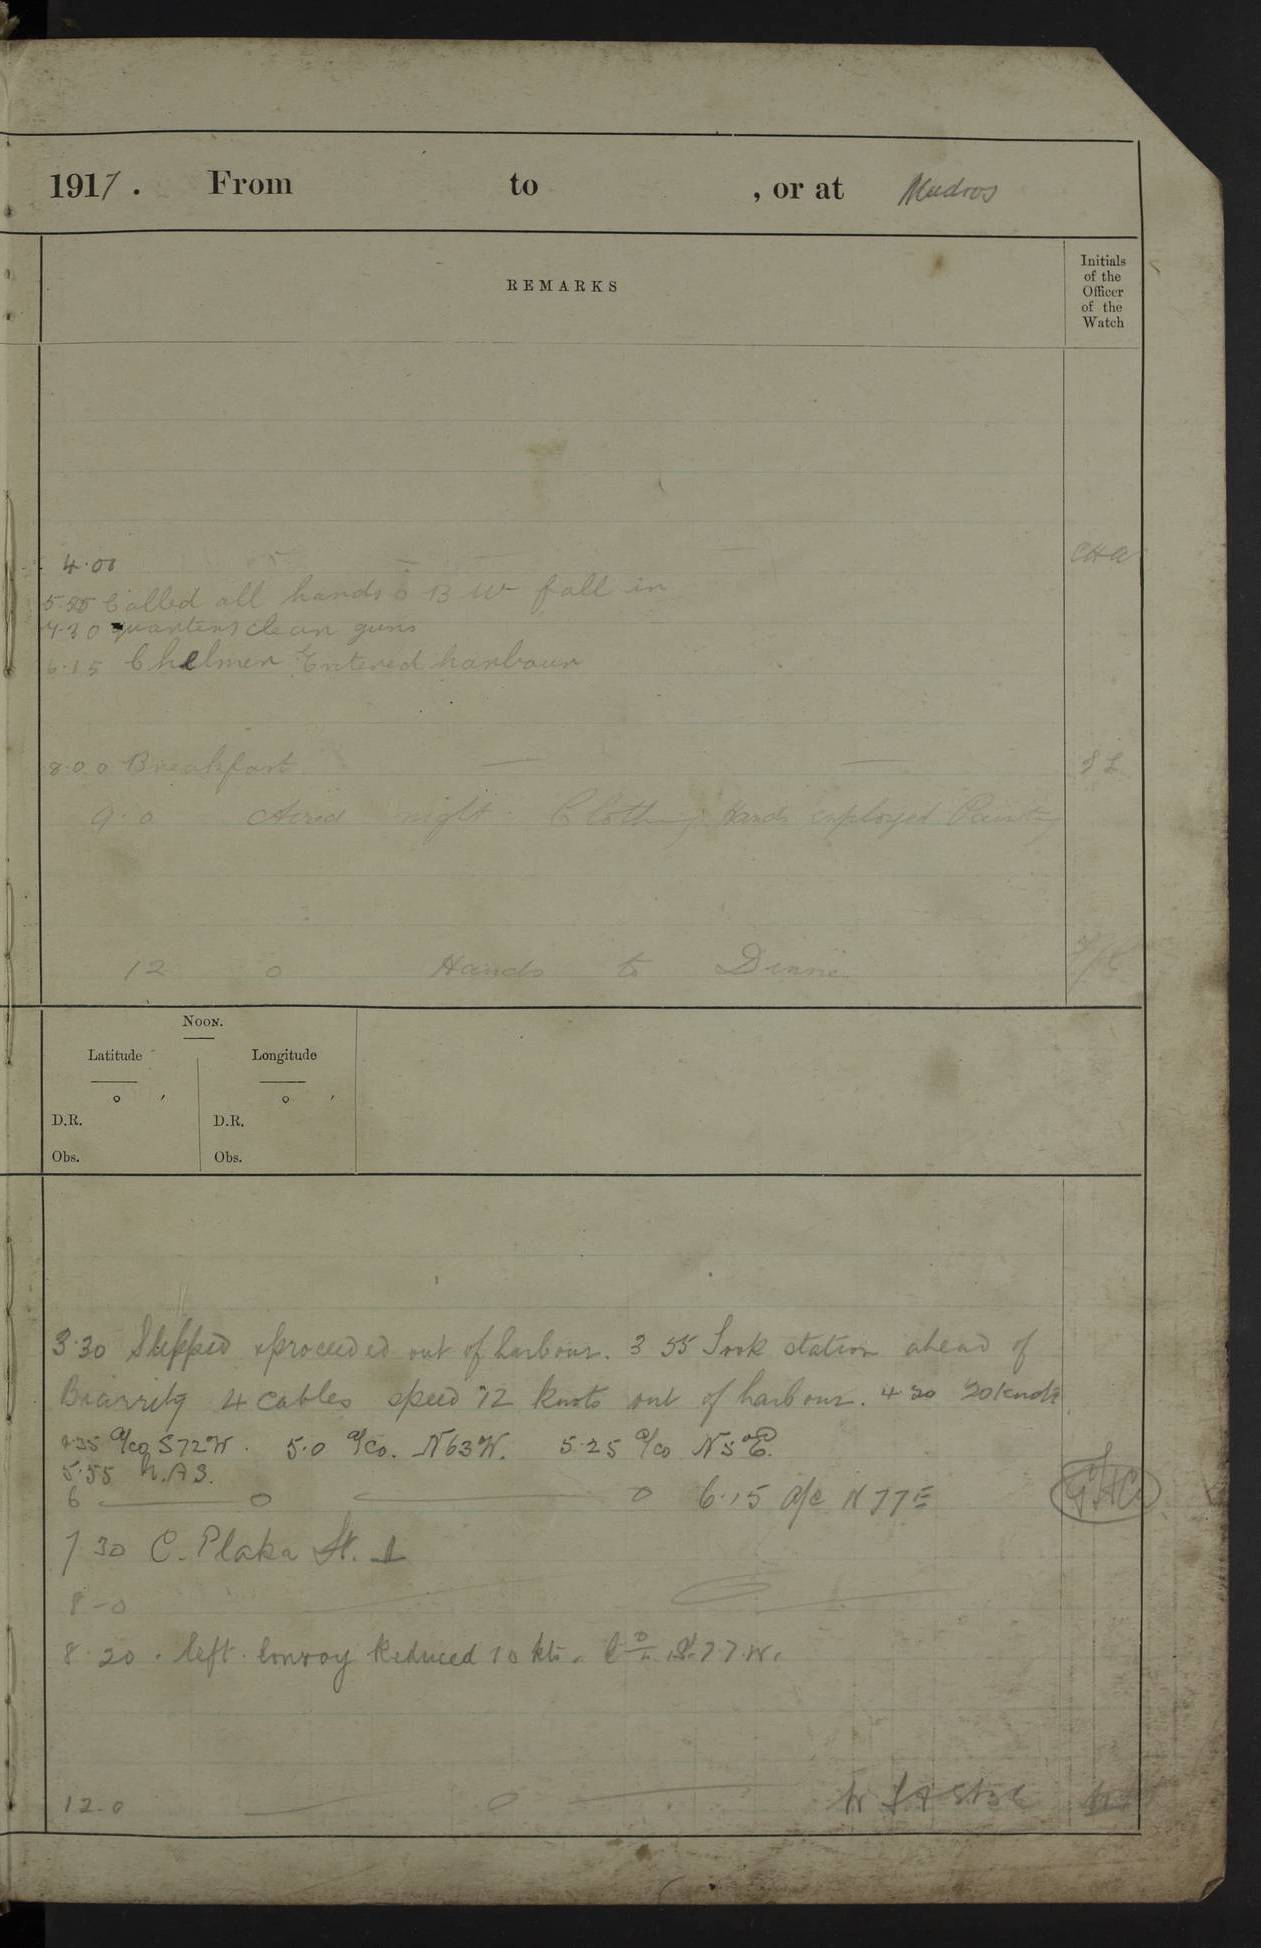 1917. From to , or at Mudros
REMARKS
Initials of the Officer of the Watch
4.00 CHA
5.25 Called all hands B W fall in
7.30 quarters clean guns
6.15 Chelmer Entered harbour
8.00 Breakfast
9.0 Aired night Clothing Hands employed Painting
12 0 Hands to Dinner
NOON.
Latitude Longitude
° ′ ° ′
D.R. D.R.
Obs. Obs.
3.30 Slipped & proceeded out of harbour. 3 55 Took station ahead of
Biarritz 4 cables speed 12 knots out of harbour. 4.20 20 knots
4.35 a/co S72W. 5.0 a/co. N63W. 5.25 a/co N5°E.
5.55 N.A.S.
6 0 0 6.15 A/c N77E
7 30 C. Plaka Lt.
8-0
8.20. left convoy Reduced 10 kts. S.77.W.
12.0